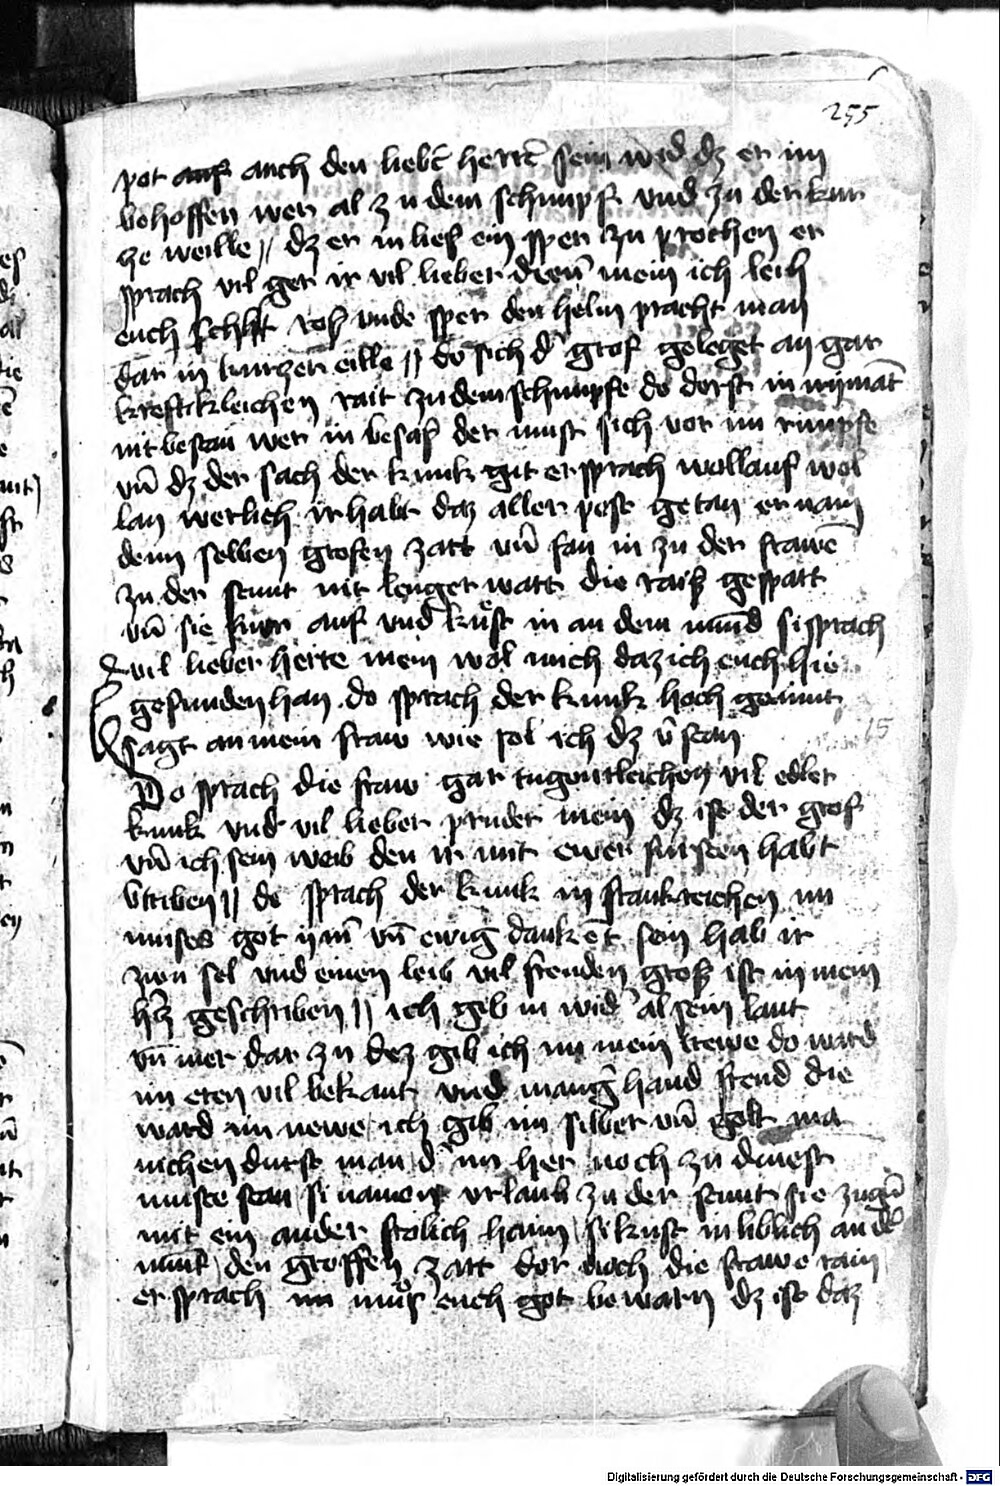 255
pot auch den liebē herrē sein wid dz er im
beholffen wer al zu dem schimpf vnd zu der kur
cze weille // dz er in lies ein sper zu prechen er
sprach vil ger ir vil lieber diener mein ich leich
euch schilt ros vnde sper den helm pracht man
dar in kurczer eille // do sich d' grof geleget an gar
kreftikleichen rait zu dem schimpfe do dorft in nymāt
nit bestan wer in besas der must sich vor im rimpfe
vn̄ dz der sach der kunk gut er sprach wollauf wol
lan werlich ir habt daz aller pest getan er nam
denn selben grofen zart vn̄ fan in zu der frawē
zu der stunt nit lenger wart die rais gespart
vn̄ sie fur auf vnd kůst in an dem mūnd si sprach
vil lieber herre mein wol mich daz ich euch hie
gefunden han do sprach der kunk hoch gemut
sagt an mein fraw wie sol ich dz v̄stan
15
Do sprach die fraw gar tugentleichen vil edler
kunk vnd vil lieber pruder mein dz ist der grof
vn̄ ich sein weib den ir mit ewer fursten habt
v̄triben // do sprach der kunk in frankreichen nu
muises got ym̄ vn̄ ewig danket sein hab ir
zwu sel vnd einen leib vil freuden gros ist in mein
hercz geschriben // ich gib in wid' al sein lant
vn̄ mer dar zu dez gib ich im mein trewe do ward
im eren vil bekant vnd mang' hand freud die
ward im newe ich gib im silber vn̄ golt ma
nichen durst man d' im her noch zu dinest
muiste stan si namen vrlaub zu der stunt sie zugn̄
mit ein ander frolich haim si kust in liblich an de
mūnt den groffen zart dor noch die frawe rain
er sprach nu můs euch got bewarn dz ist daz
Digitalisierung gefördert durch die Deutsche Forschungsgemeinschaft - DFG